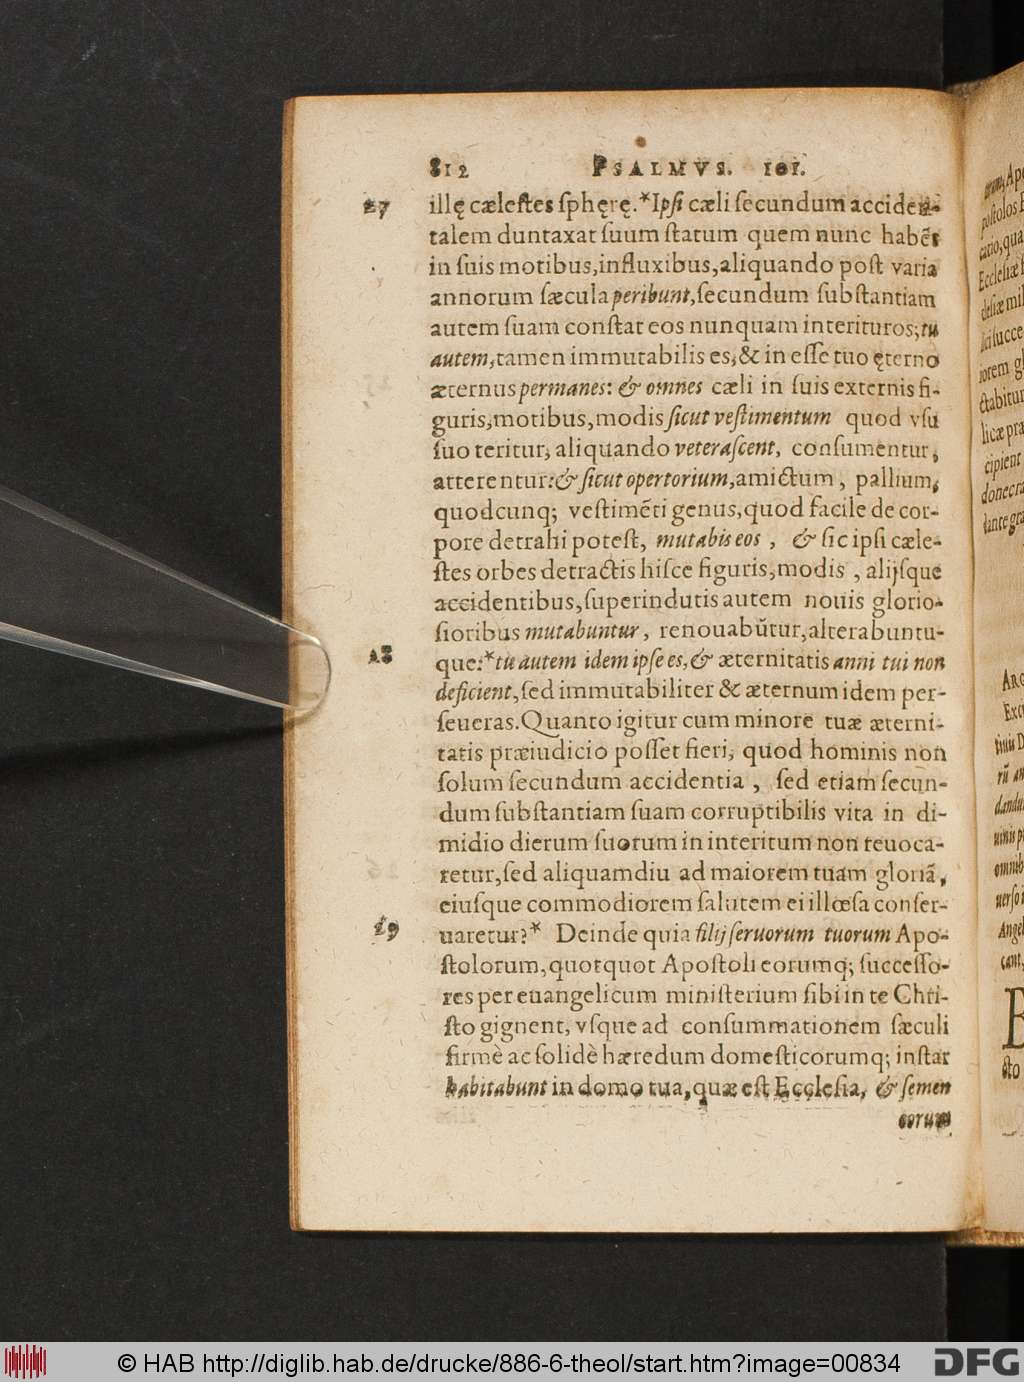 812 PSALMVS. 101.
27 illę cæleſtes ſphęrę.*Ipſi cæli ſecundum acciden-
talem duntaxat ſuum ſtatum quem nunc habẽt
in ſuis motibus,influxibus,aliquando poſt varia
annorum ſæcula peribunt,ſecundum ſubſtantiam
autem ſuam conſtat eos nunquam interituros;tu
autem,tamen immutabilis es,& in eſſe tuo ęterno
æternus permanes: & omnes cæli in ſuis externis fi-
guris,motibus,modis ſicut veſtimentum quod vſu
ſuo teritur, aliquando veteraſcent, conſumentur,
atterentur:& ſicut opertorium,amictum, pallium,
quodcunq; veſtimẽti genus,quod facile de cor-
pore detrahi poteſt, mutabis eos , & ſic ipſi cæle-
ſtes orbes detractis hiſce figuris,modis , alijſque
accidentibus,ſuperindutis autem nouis glorio-
ſioribus mutabuntur, renouabũtur,alterabuntu-
28 que:*tu autem idem ipſe es,& æternitatis anni tui non
deficient,ſed immutabiliter & æternum idem per-
ſeueras.Quanto igitur cum minore tuæ æterni-
tatis præiudicio poſſet fieri, quod hominis non
ſolum ſecundum accidentia , ſed etiam ſecun-
dum ſubſtantiam ſuam corruptibilis vita in di-
midio dierum ſuorum in interitum non reuoca-
retur,ſed aliquamdiu ad maiorem tuam gloriã,
eiuſque commodiorem ſalutem ei illœſa conſer-
29 uaretur?* Deinde quia filij ſeruorum tuorum Apo-
ſtolorum,quotquot Apoſtoli eorumq; ſucceſſo-
res per euangelicum miniſterium ſibi in te Chri-
ſto gignent, vſque ad conſummationem ſæculi
firmè ac ſolidè hæredum domeſticorumq; inſtar
habitabunt in domo tua,quæ eſt Eccleſia, & ſemen
eorum
© HAB http://diglib.hab.de/drucke/886-6-theol/start.htm?image=00834
DFG